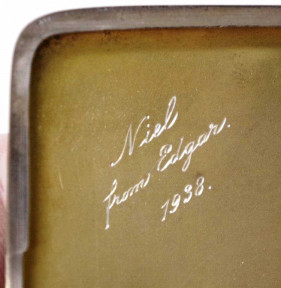 Niel
from Edgar.
1938.